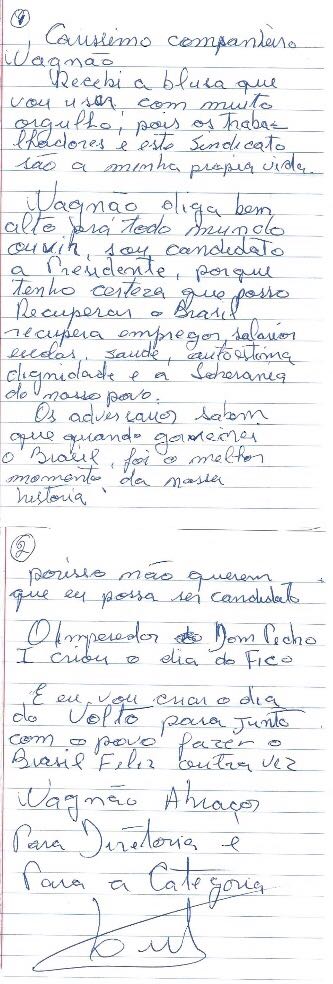 1
Carissimo companheiro
Wagnão
Recebi a blusa que
vou usar com muito
orgulho, pois os traba-
lhadores e este Sindicato
são a minha propia vida.
Wagnão diga bem
alto prá todo mundo
ouvir, sou candidato
a Presidente, porque
tenho certeza que posso
Recuperar o Brasil
recupera empregos, salários
escolas, saude, autoestima
dignidade e a Soberania
do nosso povo.
Os adversarios sabem
que quando governei
o Brasil, foi o melhor
momento da nossa
historia
2
porisso não querem
que eu possa ser candidato
O Imperador Dom Pedro
I criou o dia do Fico
E eu vou criar o dia
do Volto para junto
com o povo fazer o
Brasil Feliz outra vez
Wagnão Abraços
Para Diretoria e
Para a Categoria